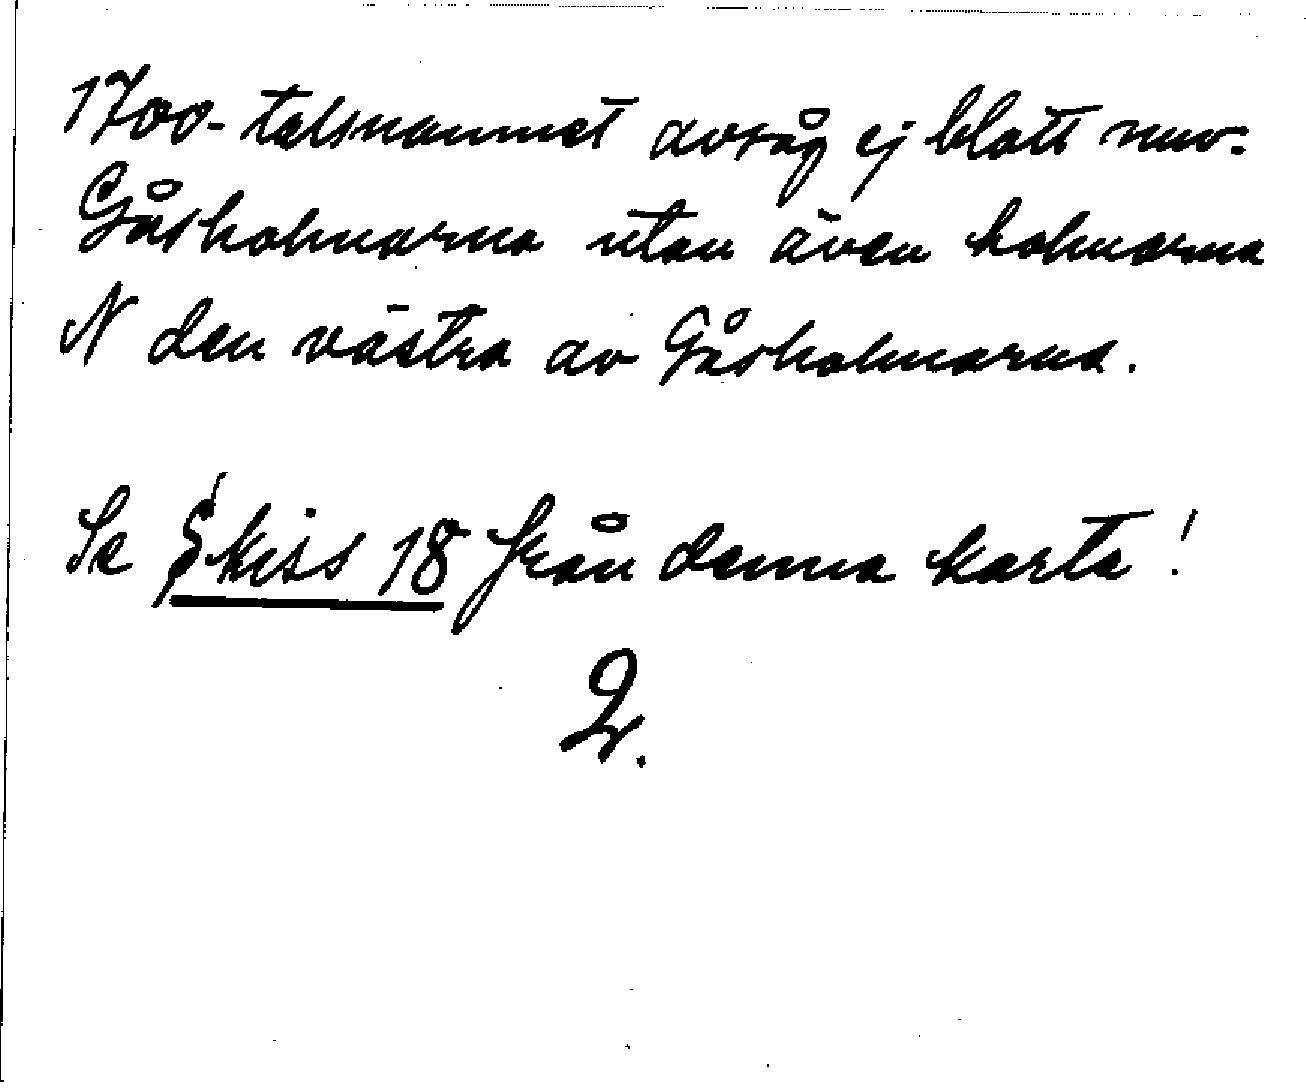 1700-talsnamnet avsåg ej blott nuv.
Gåsholmarna utan även holmarna
N den västra av Gåsholmarna.
Se Skiss 18 från denna karta!
2.